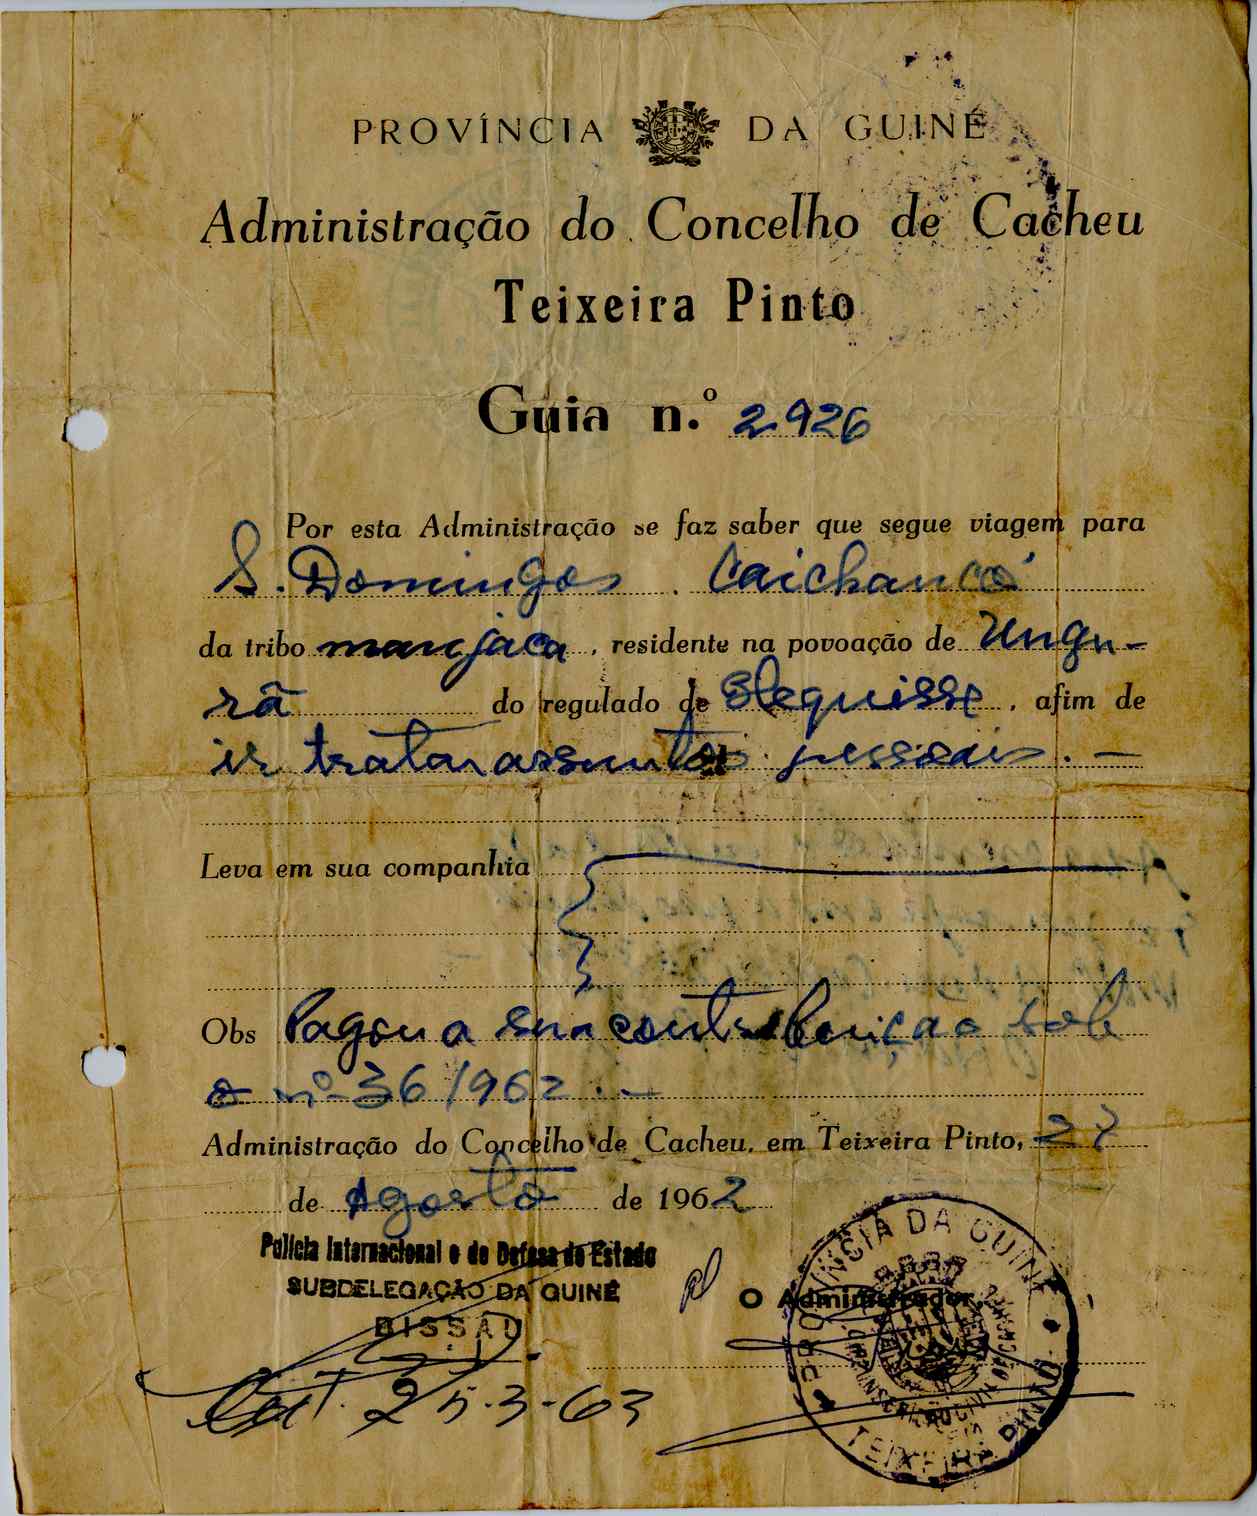 PROVÍNCIA DA GUINÉ
Administração do Concelho de Cacheu
Teixeira Pinto
Guia n.º 2.926
Por esta Administração se faz saber que segue viagem para
S. Domingos. Caichancó
da tribo manjaca, residente na povoação de Ungu-
rã do regulado de Blequisse, afim de
ir tratar assuntos pessoais. —
Leva em sua companhia
Obs Pagou a sua contribuição sob
o nº 36/962. —
Administração do Concelho de Cacheu, em Teixeira Pinto, 27
de Agosto de 1962
Polícia Internacional e de Defesa do Estado
SUBDELEGAÇÃO DA GUINÉ
BISSAU
25-3-63
O Administrador,
PROVÍNCIA DA GUINÉ
TEIXEIRA PINTO